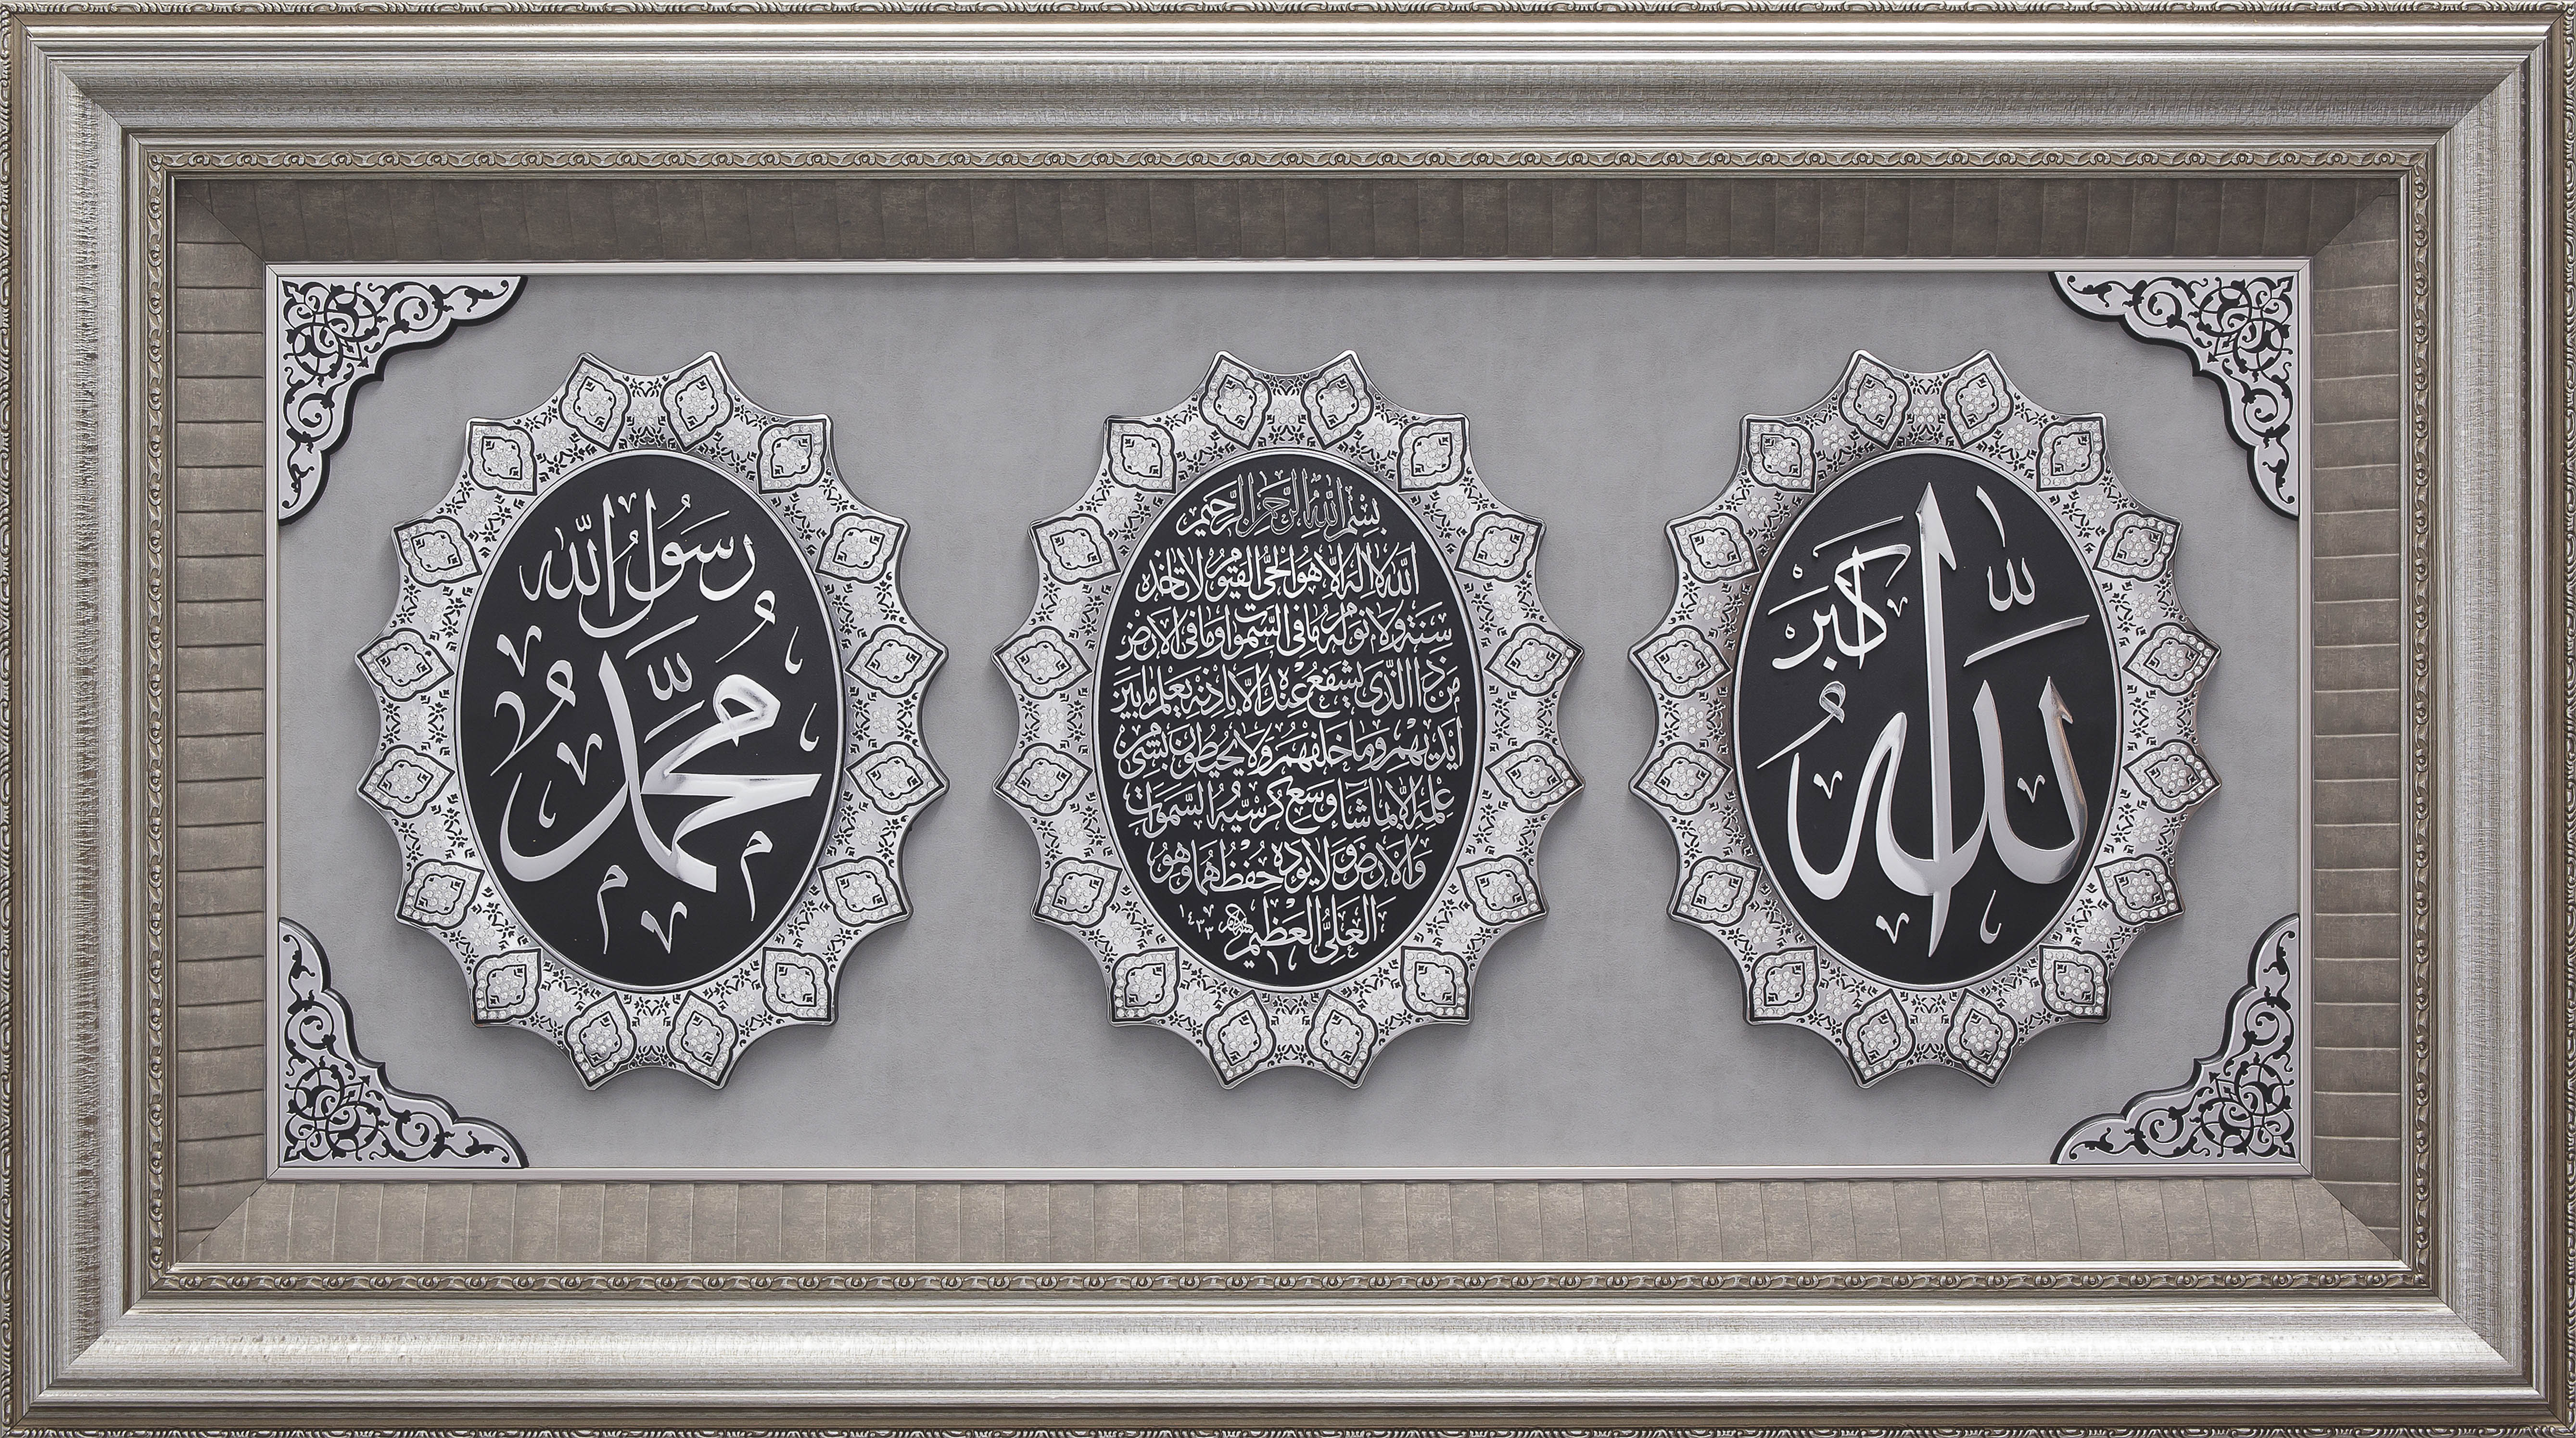 الله
أكبر
بسم الله الرحمن الرحيم
الله لا اله الا هو الحي القيوم لا تأخذه
سنة ولا نوم له ما في السموات وما في الارض
من ذا الذي يشفع عنده الا باذنه يعلم ما بين
ايديهم وما خلفهم ولا يحيطون بشئ من
علمه الا بما شاء وسع كرسيه السموات
والارض ولا يؤده حفظهما وهو
العلي العظيم
١٤٣٣
رسول الله
محمد